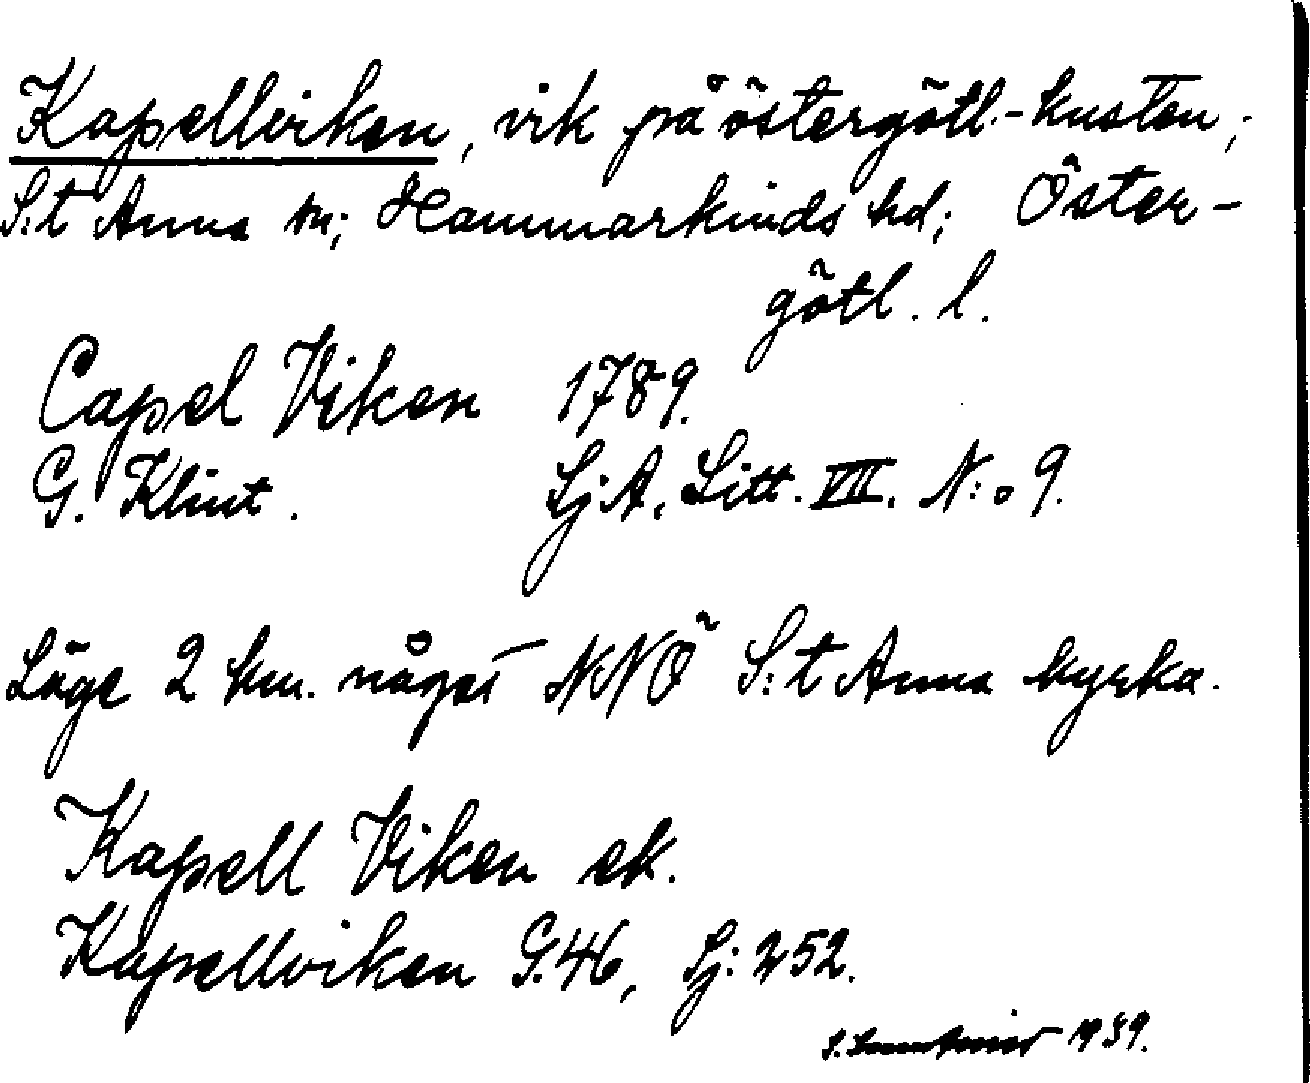 Kapellviken, vik på östergötl.-kusten;
S:t Anna sn; Hammarkinds hd; Öster-
götl. l.
Capel Viken 1789.
G. Klint. SjA. Litt. VII. N:o 9.
Läge 2 km. något NNÖ S:t Anna kyrka.
Kapell Viken ek.
Kapellviken G.46, Sj: 252.
S. 1939.